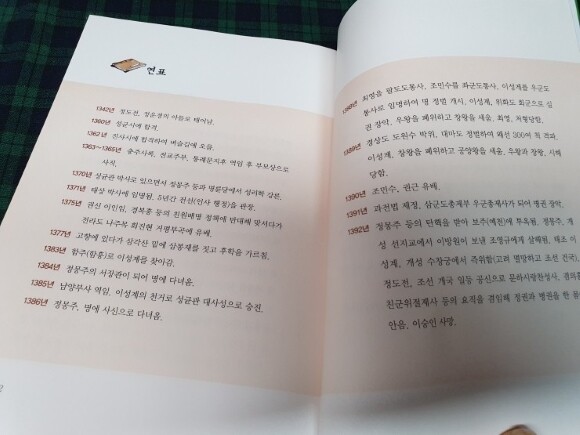 연표
1342년 정도전, 정운경의 아들로 태어남.
1360년 성균시에 합격.
1362년 진사시에 합격하여 벼슬길에 오름.
1363~1365년 충주사록, 전교주부, 통례문지후 역임 후 부모상으로
사직.
1370년 성균관 박사로 있으면서 정몽주 등과 명륜당에서 성리학 강론.
1371년 태상 박사에 임명됨. 5년간 전선(인사 행정)을 관장.
1375년 권신 이인임, 경복흥 등의 친원배명 정책에 반대해 맞서다가
전라도 나주목 회진현 거평부곡에 유배.
1377년 고향에 있다가 삼각산 밑에 삼봉재를 짓고 후학을 가르침.
1383년 함주(함흥)로 이성계를 찾아감.
1384년 정몽주의 서장관이 되어 명에 다녀옴.
1385년 남양부사 역임. 이성계의 천거로 성균관 대사성으로 승진.
1386년 정몽주, 명에 사신으로 다녀옴.
1388년 최영을 팔도도통사, 조민수를 좌군도통사, 이성계를 우군도
통사로 임명하여 명 정벌 개시, 이성계, 위화도 회군으로 실
권 장악, 우왕을 폐위하고 창왕을 세움, 최영, 처형당함.
1389년 경상도 도원수 박위, 대마도 정벌하여 왜선 300여 척 격파.
이성계, 창왕을 폐위하고 공양왕을 세움, 우왕과 창왕, 시해
당함.
1390년 조민수, 권근 유배.
1391년 과전법 제정, 삼군도총제부 우군총제사가 되어 병권 장악.
1392년 정몽주 등의 탄핵을 받아 보주(예천)에 투옥됨. 정몽주, 개
성 선지교에서 이방원이 보낸 조영규에게 살해됨, 태조 이
성계, 개성 수창궁에서 즉위함(고려 멸망하고 조선 건국),
정도전, 조선 개국 일등 공신으로 문하시랑찬성사, 겸의흥
친군위절제사 등의 요직을 겸임해 정권과 병권을 한 몸
안음. 이숭인 사망.